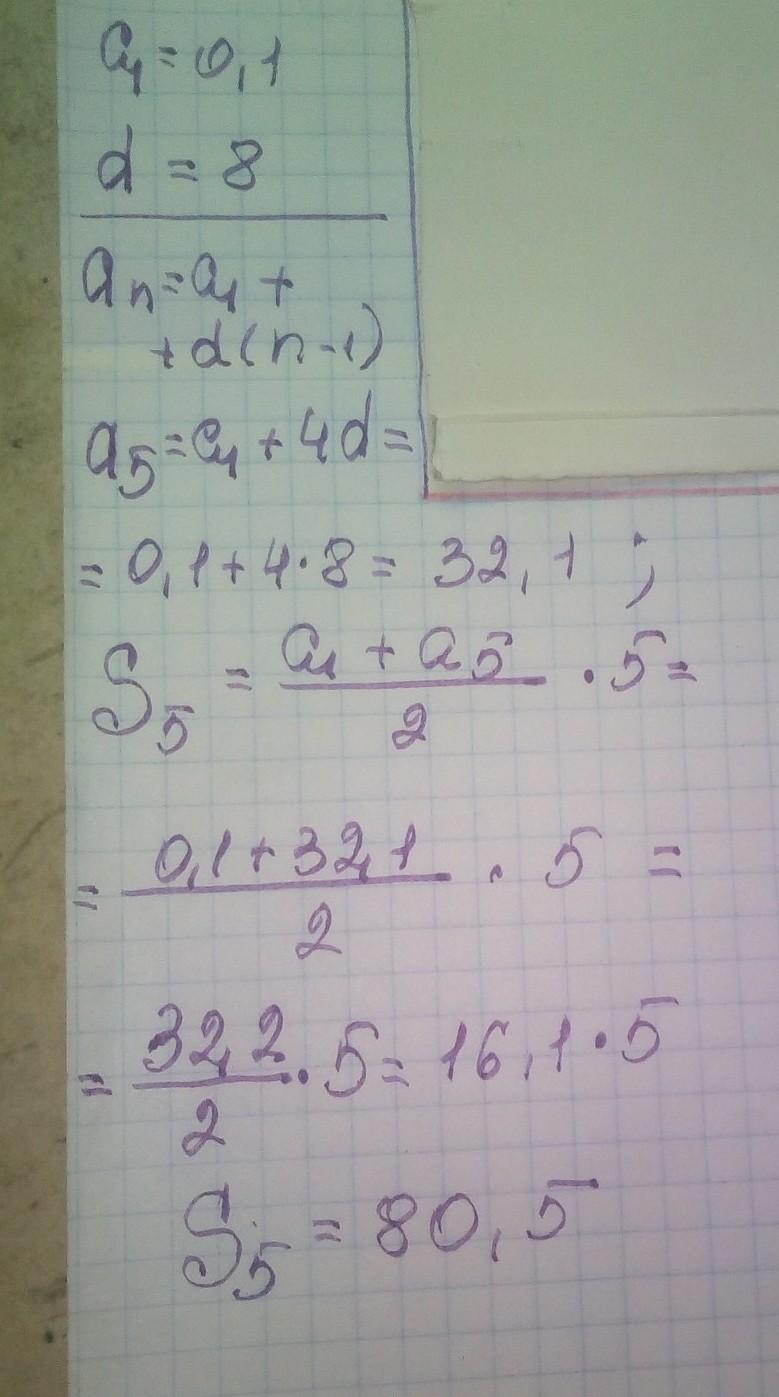 a₁ = 0,1
d = 8
aₙ = a₁ +
+ d(n-1)
a₅ = a₁ + 4d =
= 0,1 + 4·8 = 32,1 ;
S₅ = (a₁ + a₅)/2 · 5 =
= (0,1 + 32,1)/2 · 5 =
= 32,2/2 · 5 = 16,1 · 5
S₅ = 80,5